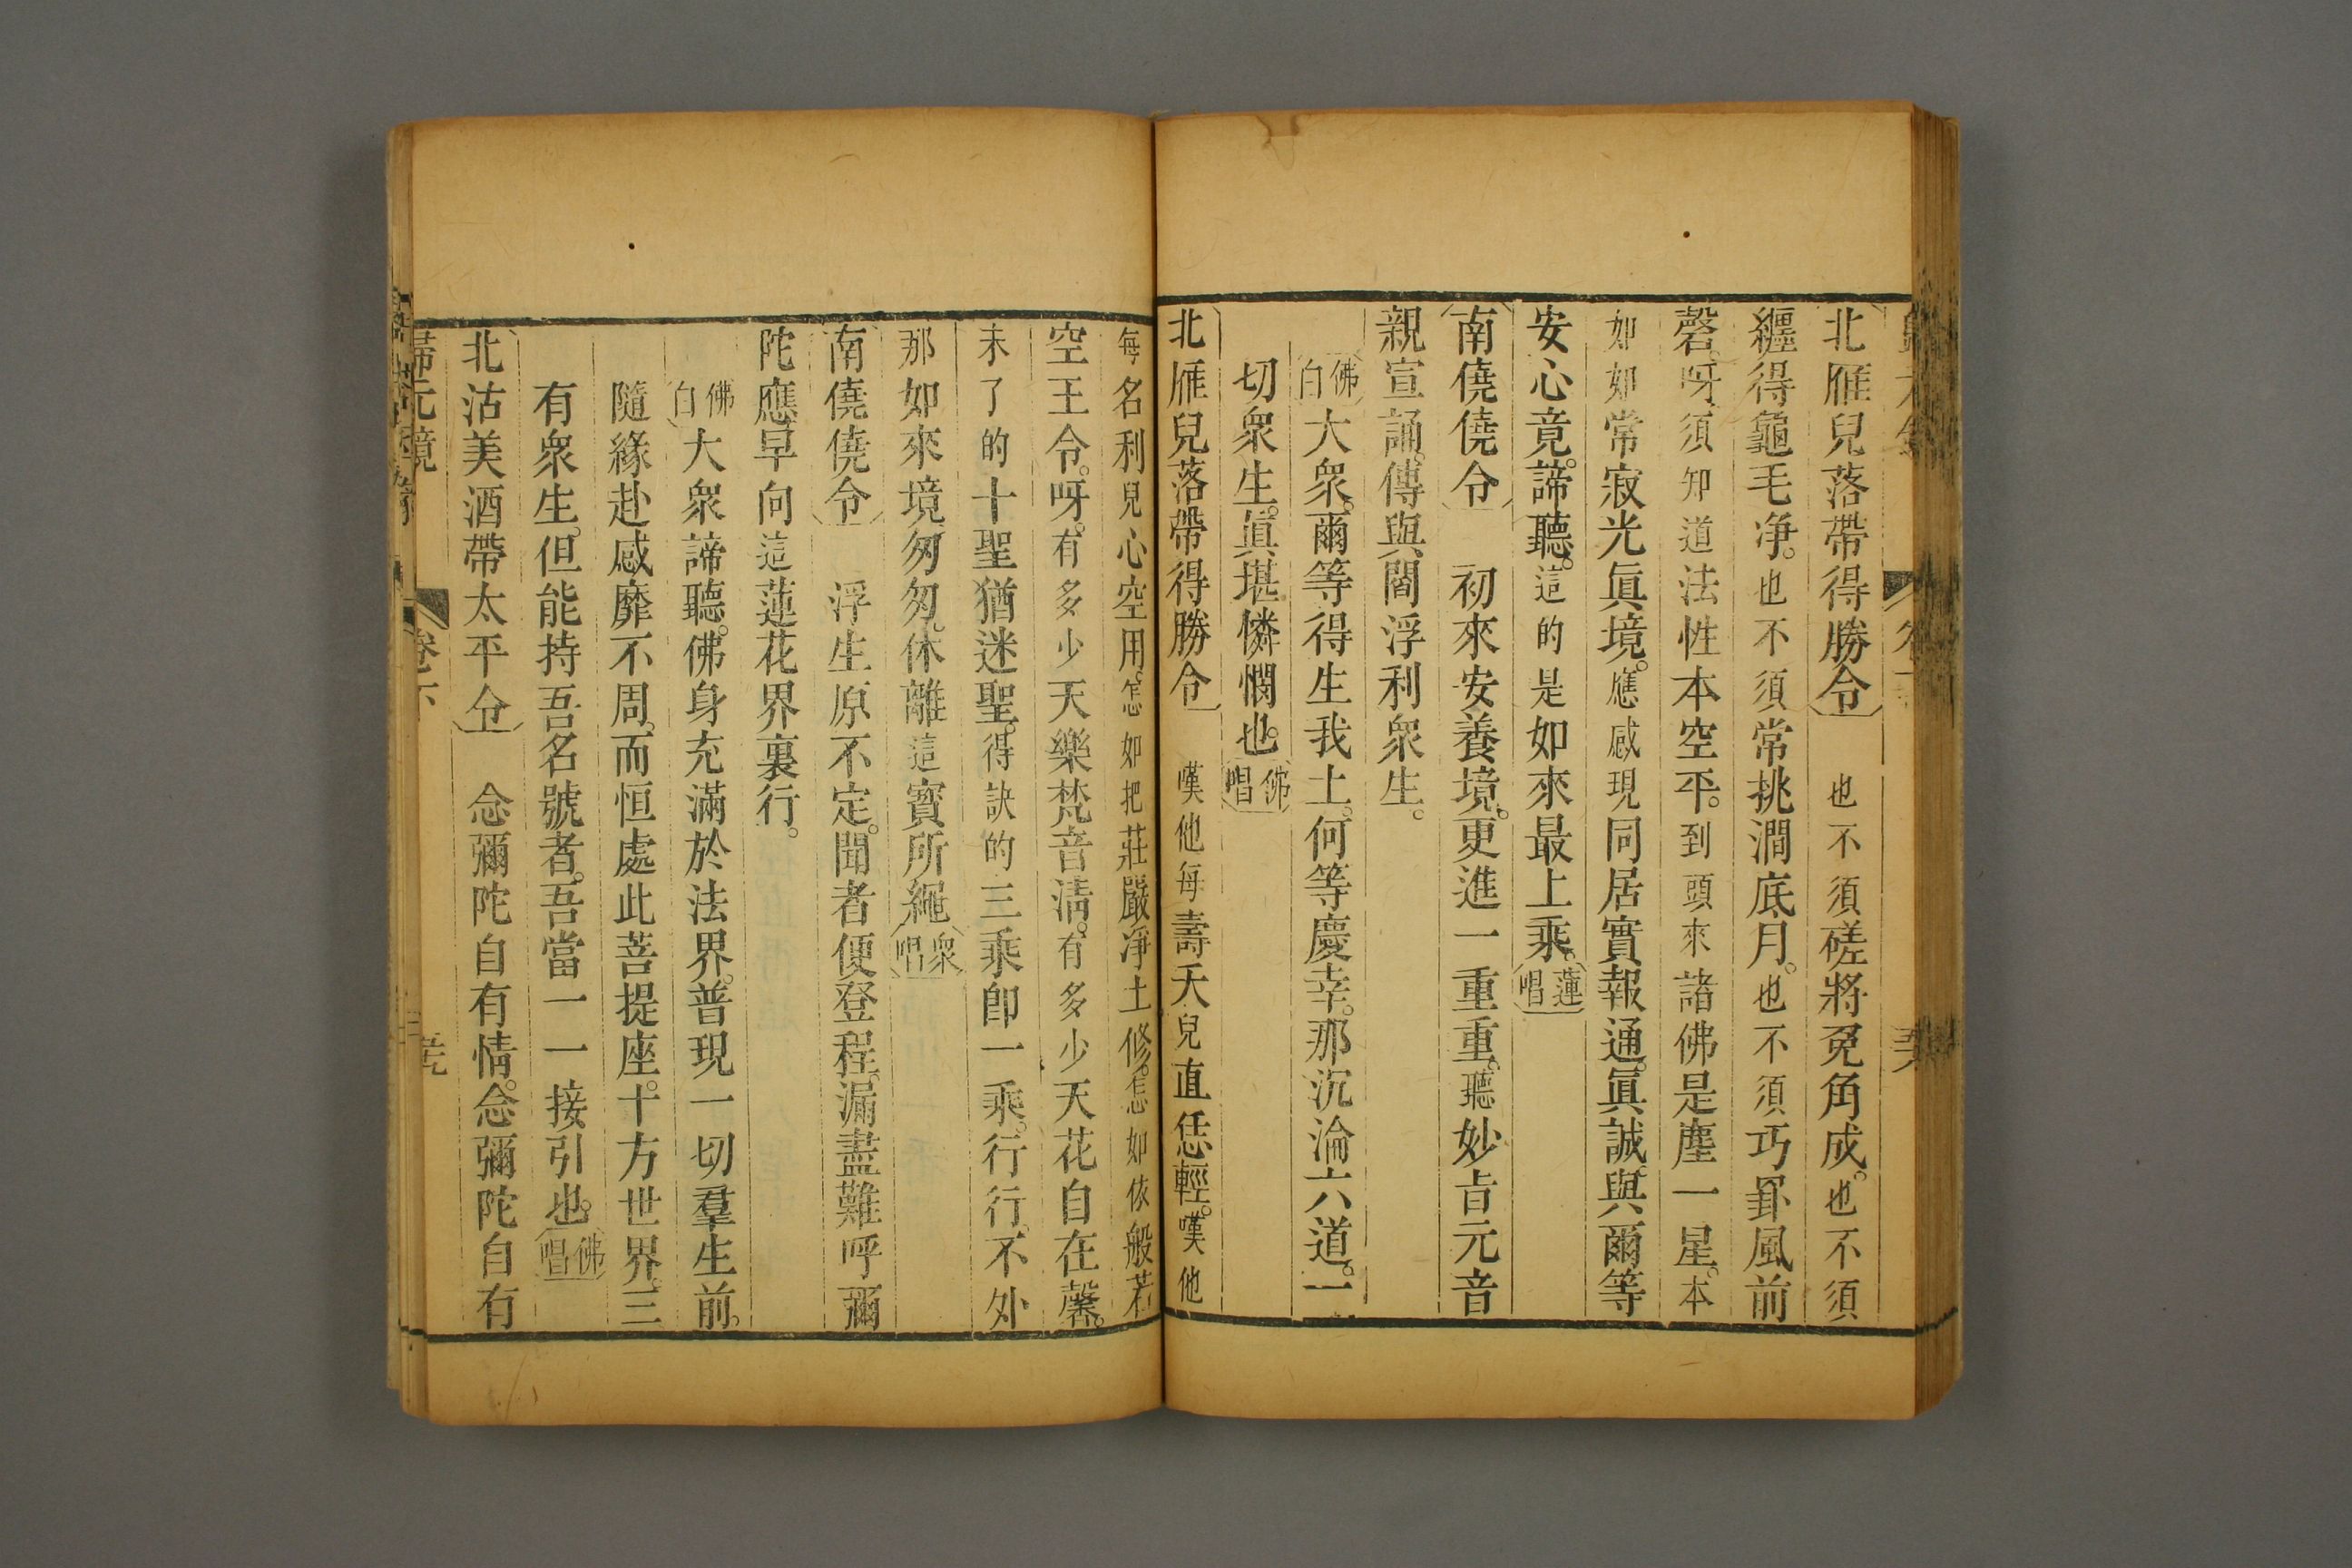 北雁兒落帶得勝令　也不須磋將兎角成。也不須
纏得龜毛净。也不須常挑澗底月。也不須巧罣風前
磬。呀須知道法性本空平。到頭來諸佛是塵一星。本
如如常寂光眞境。應感現同居實報通。眞誠與爾等
安心竟。諦聽。這的是如來最上乘。蓮唱
南僥僥令　初來安養境。更進一重重。聽妙旨元音
親宣誦。傳與閻浮利衆生。
佛白大衆。爾等得生我土。何等慶幸。那沉淪六道。一
切衆生。眞堪憐憫也。佛唱
北雁兒落帶得勝令　嘆他每壽夭兒直恁輕。嘆他
每名利兒心空用。怎如把莊嚴淨土修。怎如依般若
空王令。呀。有多少天樂梵音清。有多少天花自在馨。
未了的十聖猶迷聖。得訣的三乘卽一乘。行行。不外
那如來境。匆匆。休離這寳所繩衆唱
南僥僥令　浮生原不定。聞者便登程。漏盡難呼彌
陀應。早向這蓮花界裏行。
佛白大衆諦聽。佛身充滿於法界。普現一切羣生前。
隨緣赴感靡不周。而恒處此菩提座。十方世界。三
有衆生。但能持吾名號者。吾當一一接引也。佛唱
北沽美酒帶太平令　念彌陀自有情。念彌陀自有
歸元鏡　卷下